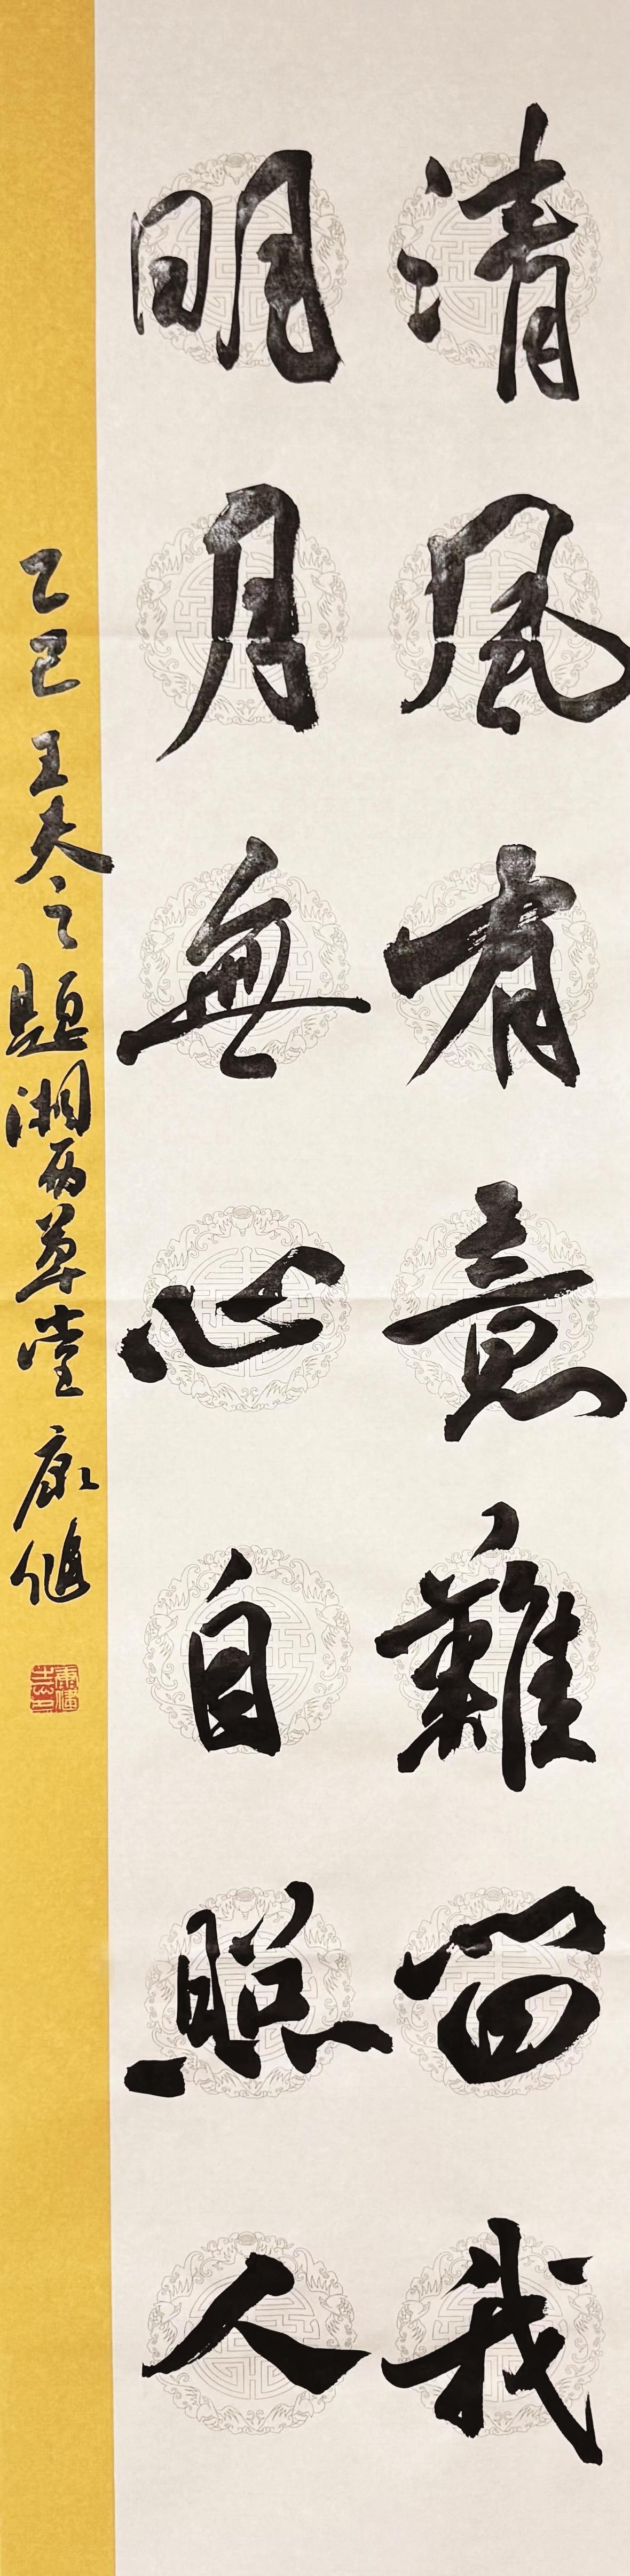 清風有意難留我
明月無心自照人
乙巳王夫之題湘西草堂康健